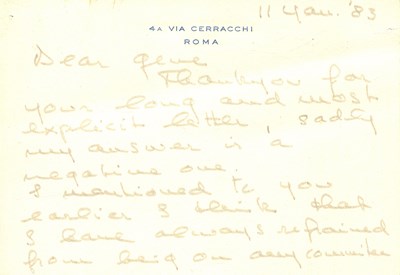 11 Jan. '83
4A VIA CERRACCHI
ROMA
Dear Gene
Thankyou for
your long and most
explicit letter, sadly
my answer is a
negative one.
I mentioned to you
earlier I think that
I have always refrained
from being on any committee